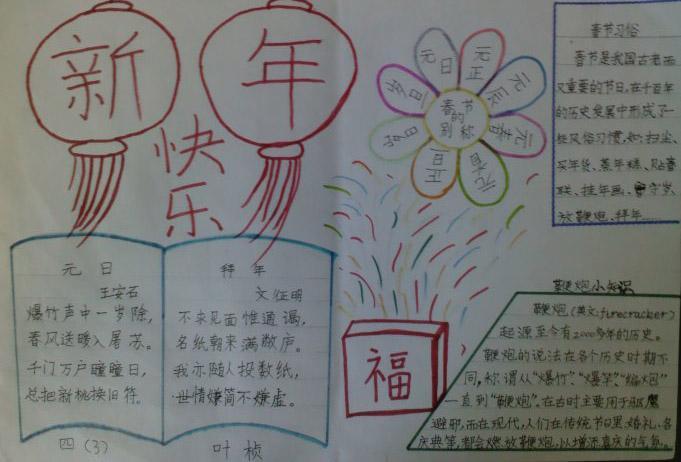 新年
快乐
元日
王安石
爆竹声中一岁除,
春风送暖入屠苏。
千门万户瞳瞳日,
总把新桃换旧符。
四(3)
拜年
文征明
不求见面惟通谒,
名纸朝来满敝庐。
我亦随人投数纸,
世情嫌简不嫌虚。
叶桢
春节
的
别称
元日
元正
元辰
元春
元朔
正旦
岁旦
福
春节习俗
春节是我国古老而
又重要的节日,在千百年
的历史发展中形成了一
些风俗习惯,如:扫尘、
买年货、蒸年糕、贴春
联、挂年画、守岁、
放鞭炮、拜年……
鞭炮小知识
鞭炮(英文:firecracker)
起源至今有2000多年的历史。
鞭炮的说法在各个历史时期不
同,称谓从“爆竹”、“爆竿”、“编炮”
一直到“鞭炮”。在古时主要用于驱魔
避邪,而在现代,人们在传统节日里、婚礼、各
庆典等,都会燃放鞭炮,以增添喜庆的气氛。